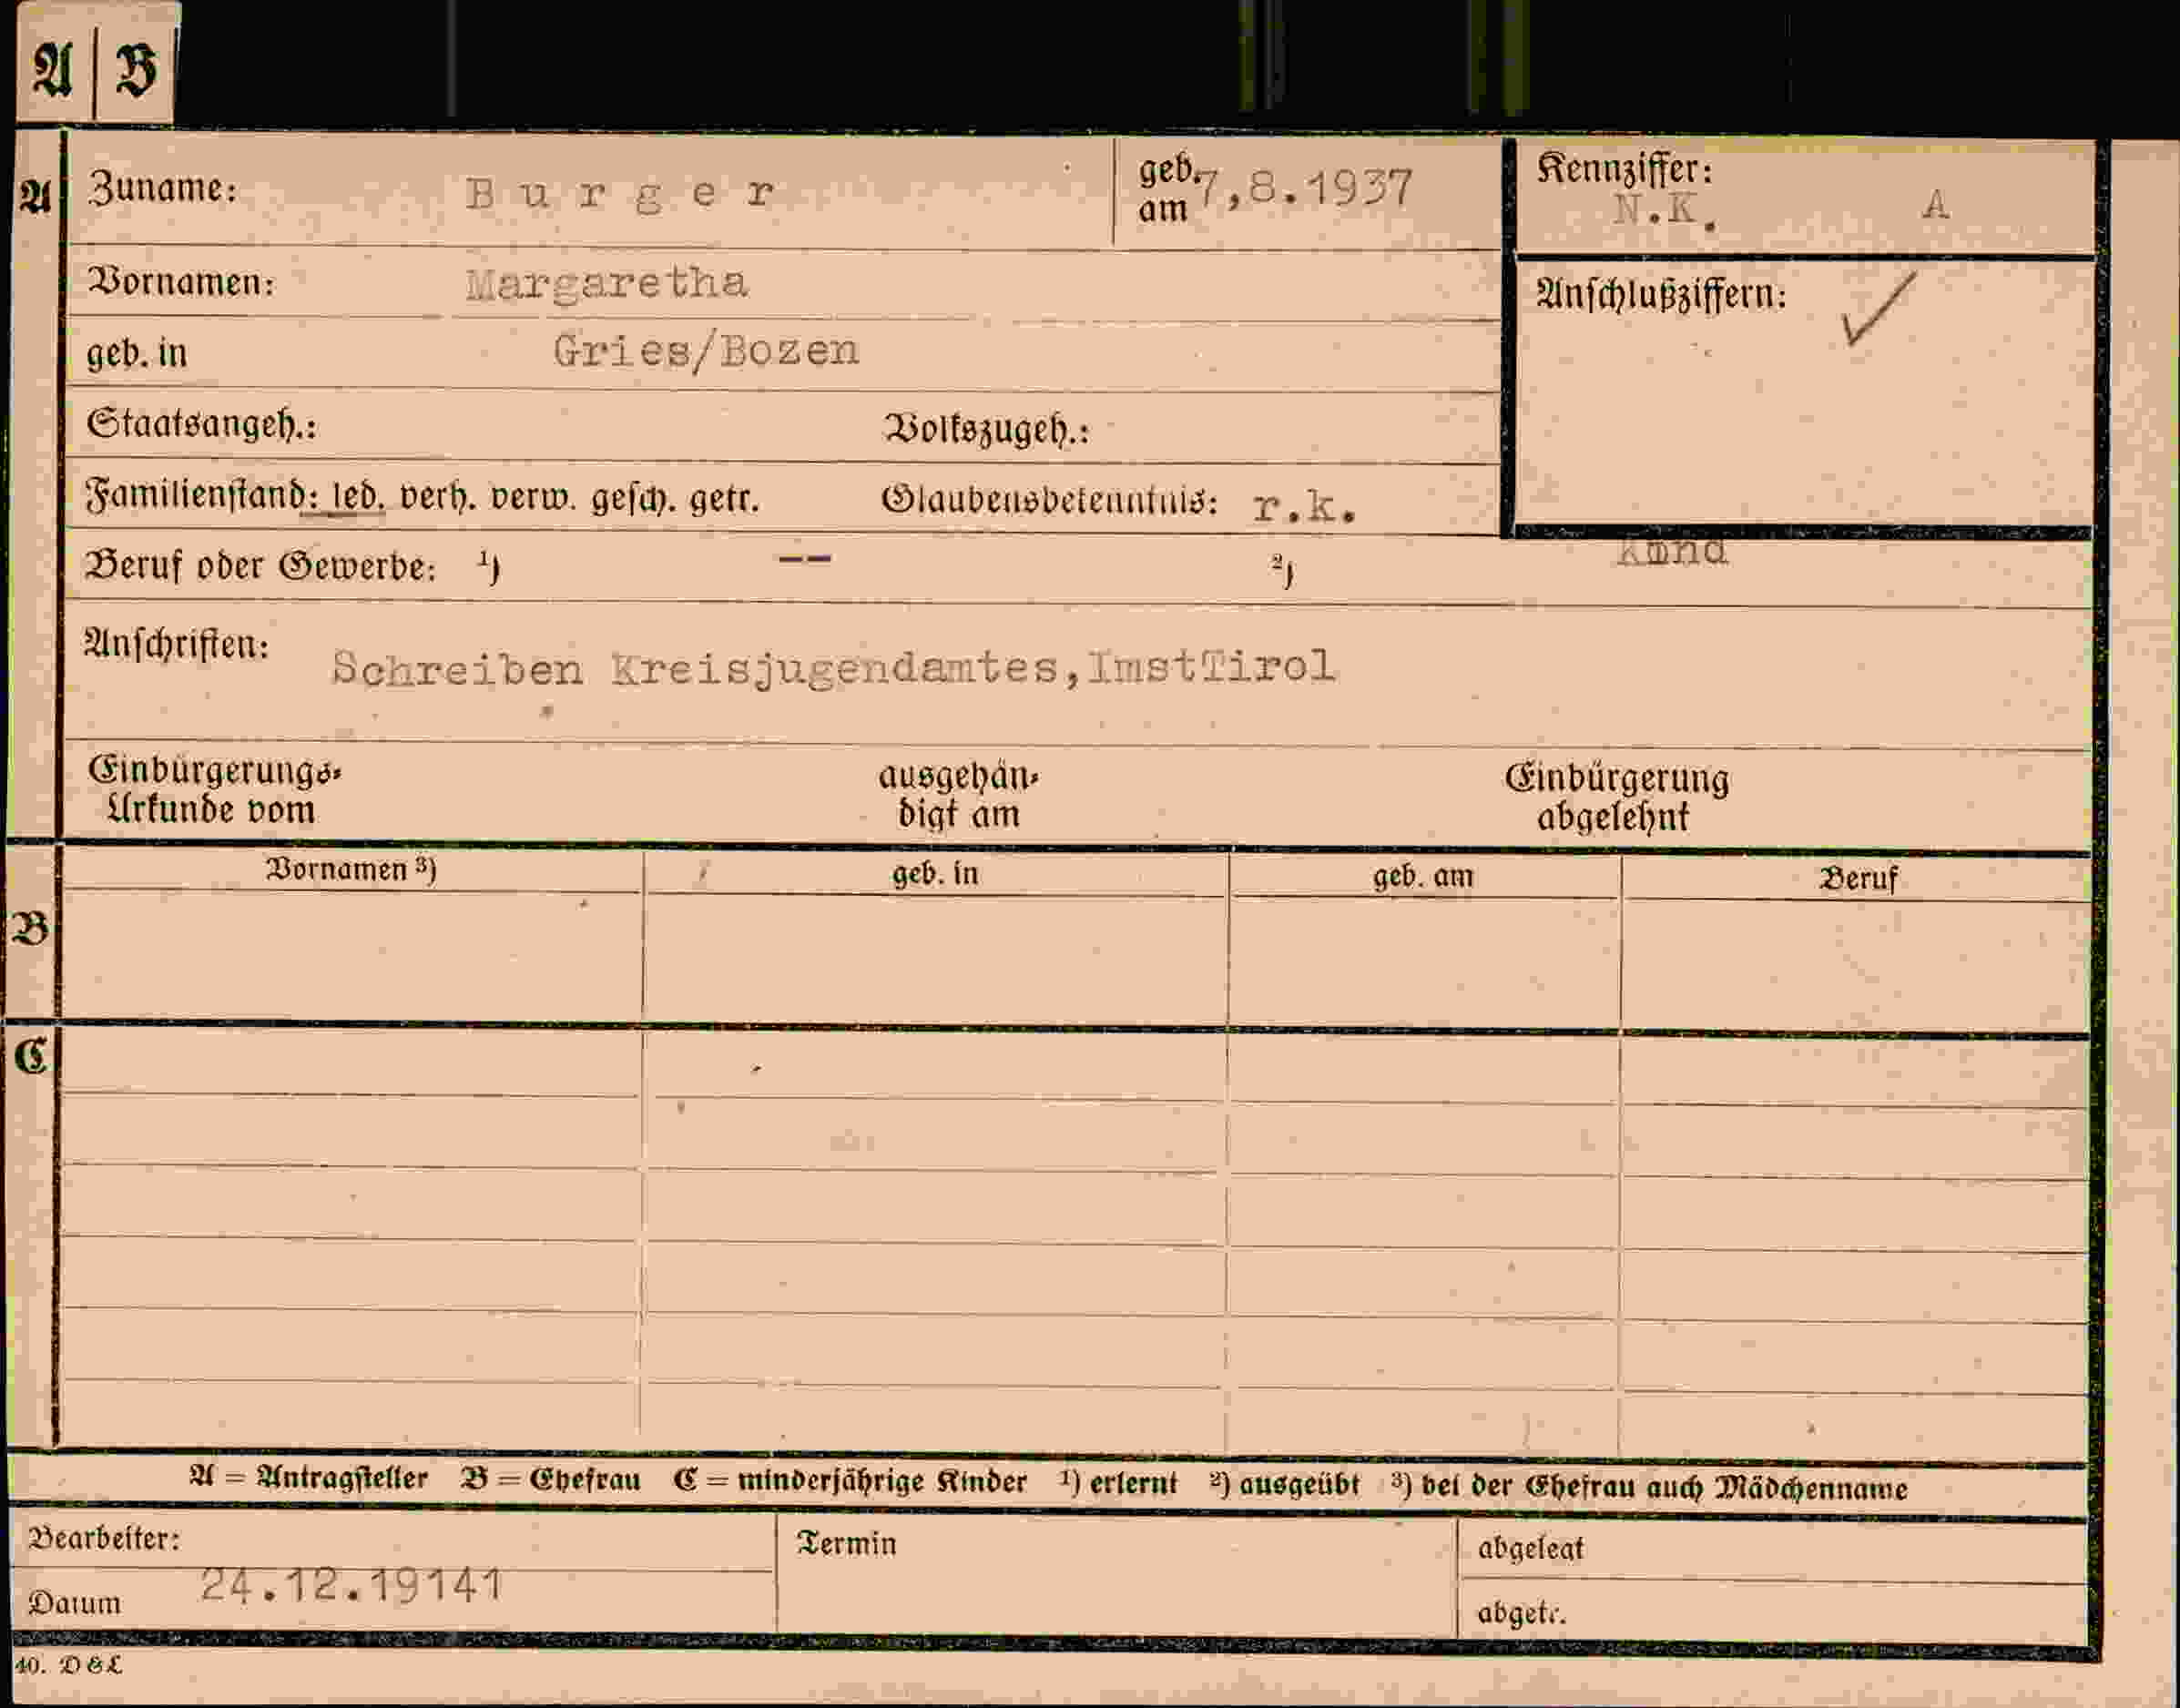 A | B
A Zuname: B u r g e r geb. am 7,8.1937 Kennziffer: N.K. A
Vornamen: Margaretha Anschlußziffern:
geb. in Gries/Bozen
Staatsangeh.: Volkszugeh.:
Familienstand: led. verh. verw. gesch. getr. Glaubensbekenntnis: r.k.
Beruf oder Gewerbe: ¹) -- ²)
Anschriften: Schreiben Kreisjugendamtes,ImstTirol
Einbürgerungs- ausgehän- Einbürgerung
Urkunde vom digt am abgelehnt
Vornamen ³) geb. in geb. am Beruf
B
C
A = Antragsteller B = Ehefrau C = minderjährige Kinder ¹) erlernt ²) ausgeübt ³) bei der Ehefrau auch Mädchenname
Bearbeiter: Termin abgelegt
Datum 24.12.19141 abgetr.
40. D&L